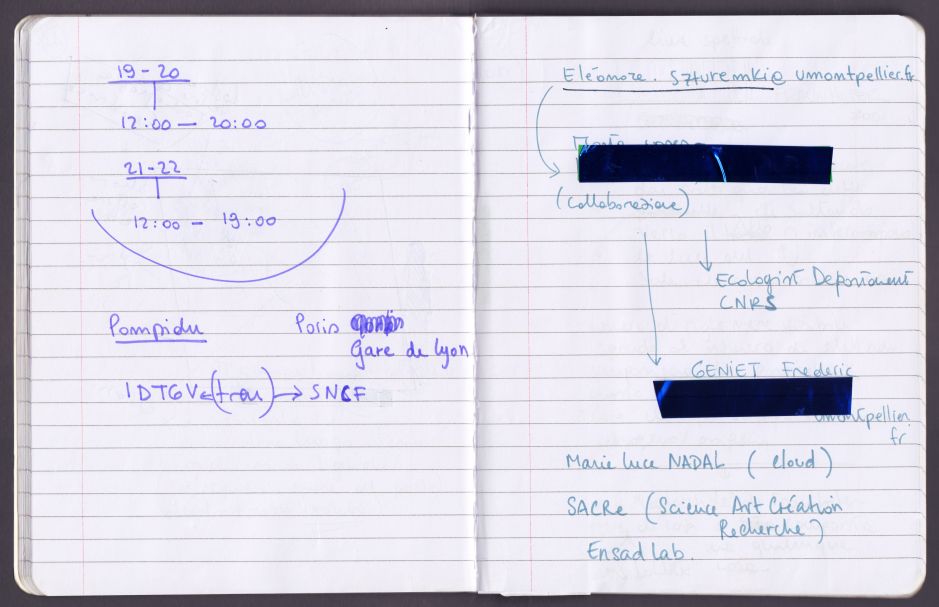 19-20
12:00 — 20:00
21-22
12:00 - 19:00
Pompidu Paris
Gare de Lyon
IDTGV (tren) → SNCF
Eléonore. Szturemki@umontpellier.fr
(Collaborazione)
Ecologist Department
CNRS
GENIET Frederic
umontpellier.
fr
Marie Luce NADAL (cloud)
SACRe (Science Art Création
Recherche)
Ensad Lab.